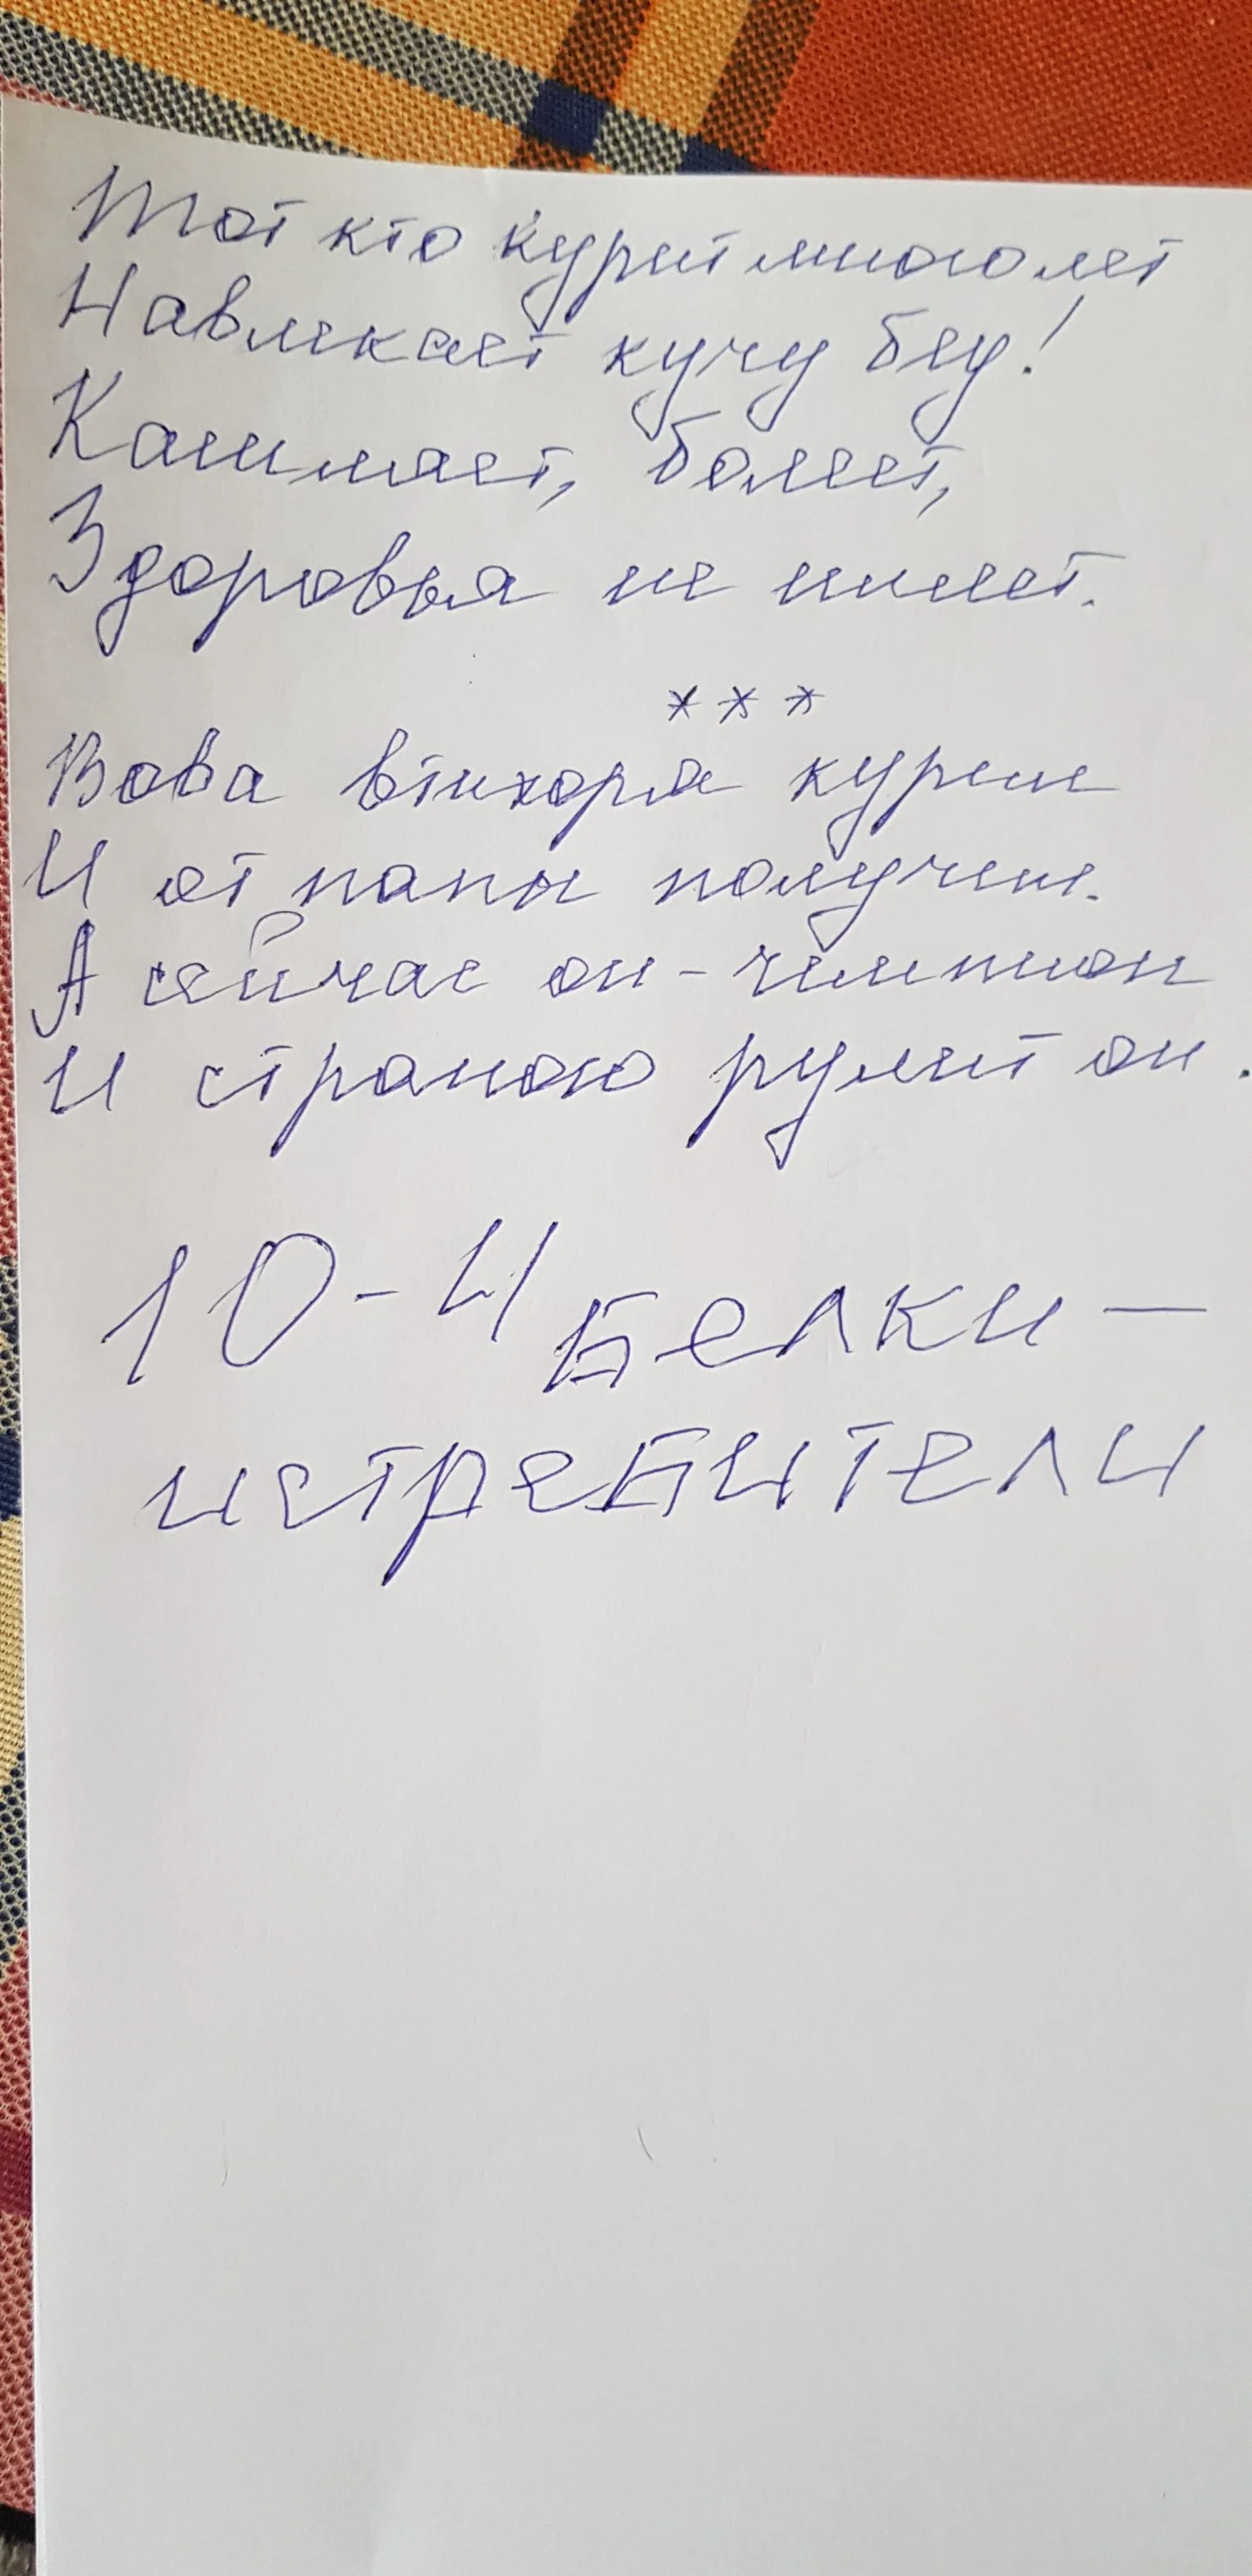 Тот кто курит много лет
Навлекает кучу бед!
Кашляет, болеет,
Здоровья не имеет.
* * *
Вова втихоря курил
И от папы получил.
А сейчас он - чемпион
И страною рулит он.
10-И БЕЛКИ —
иСТРЕБИТЕЛИ